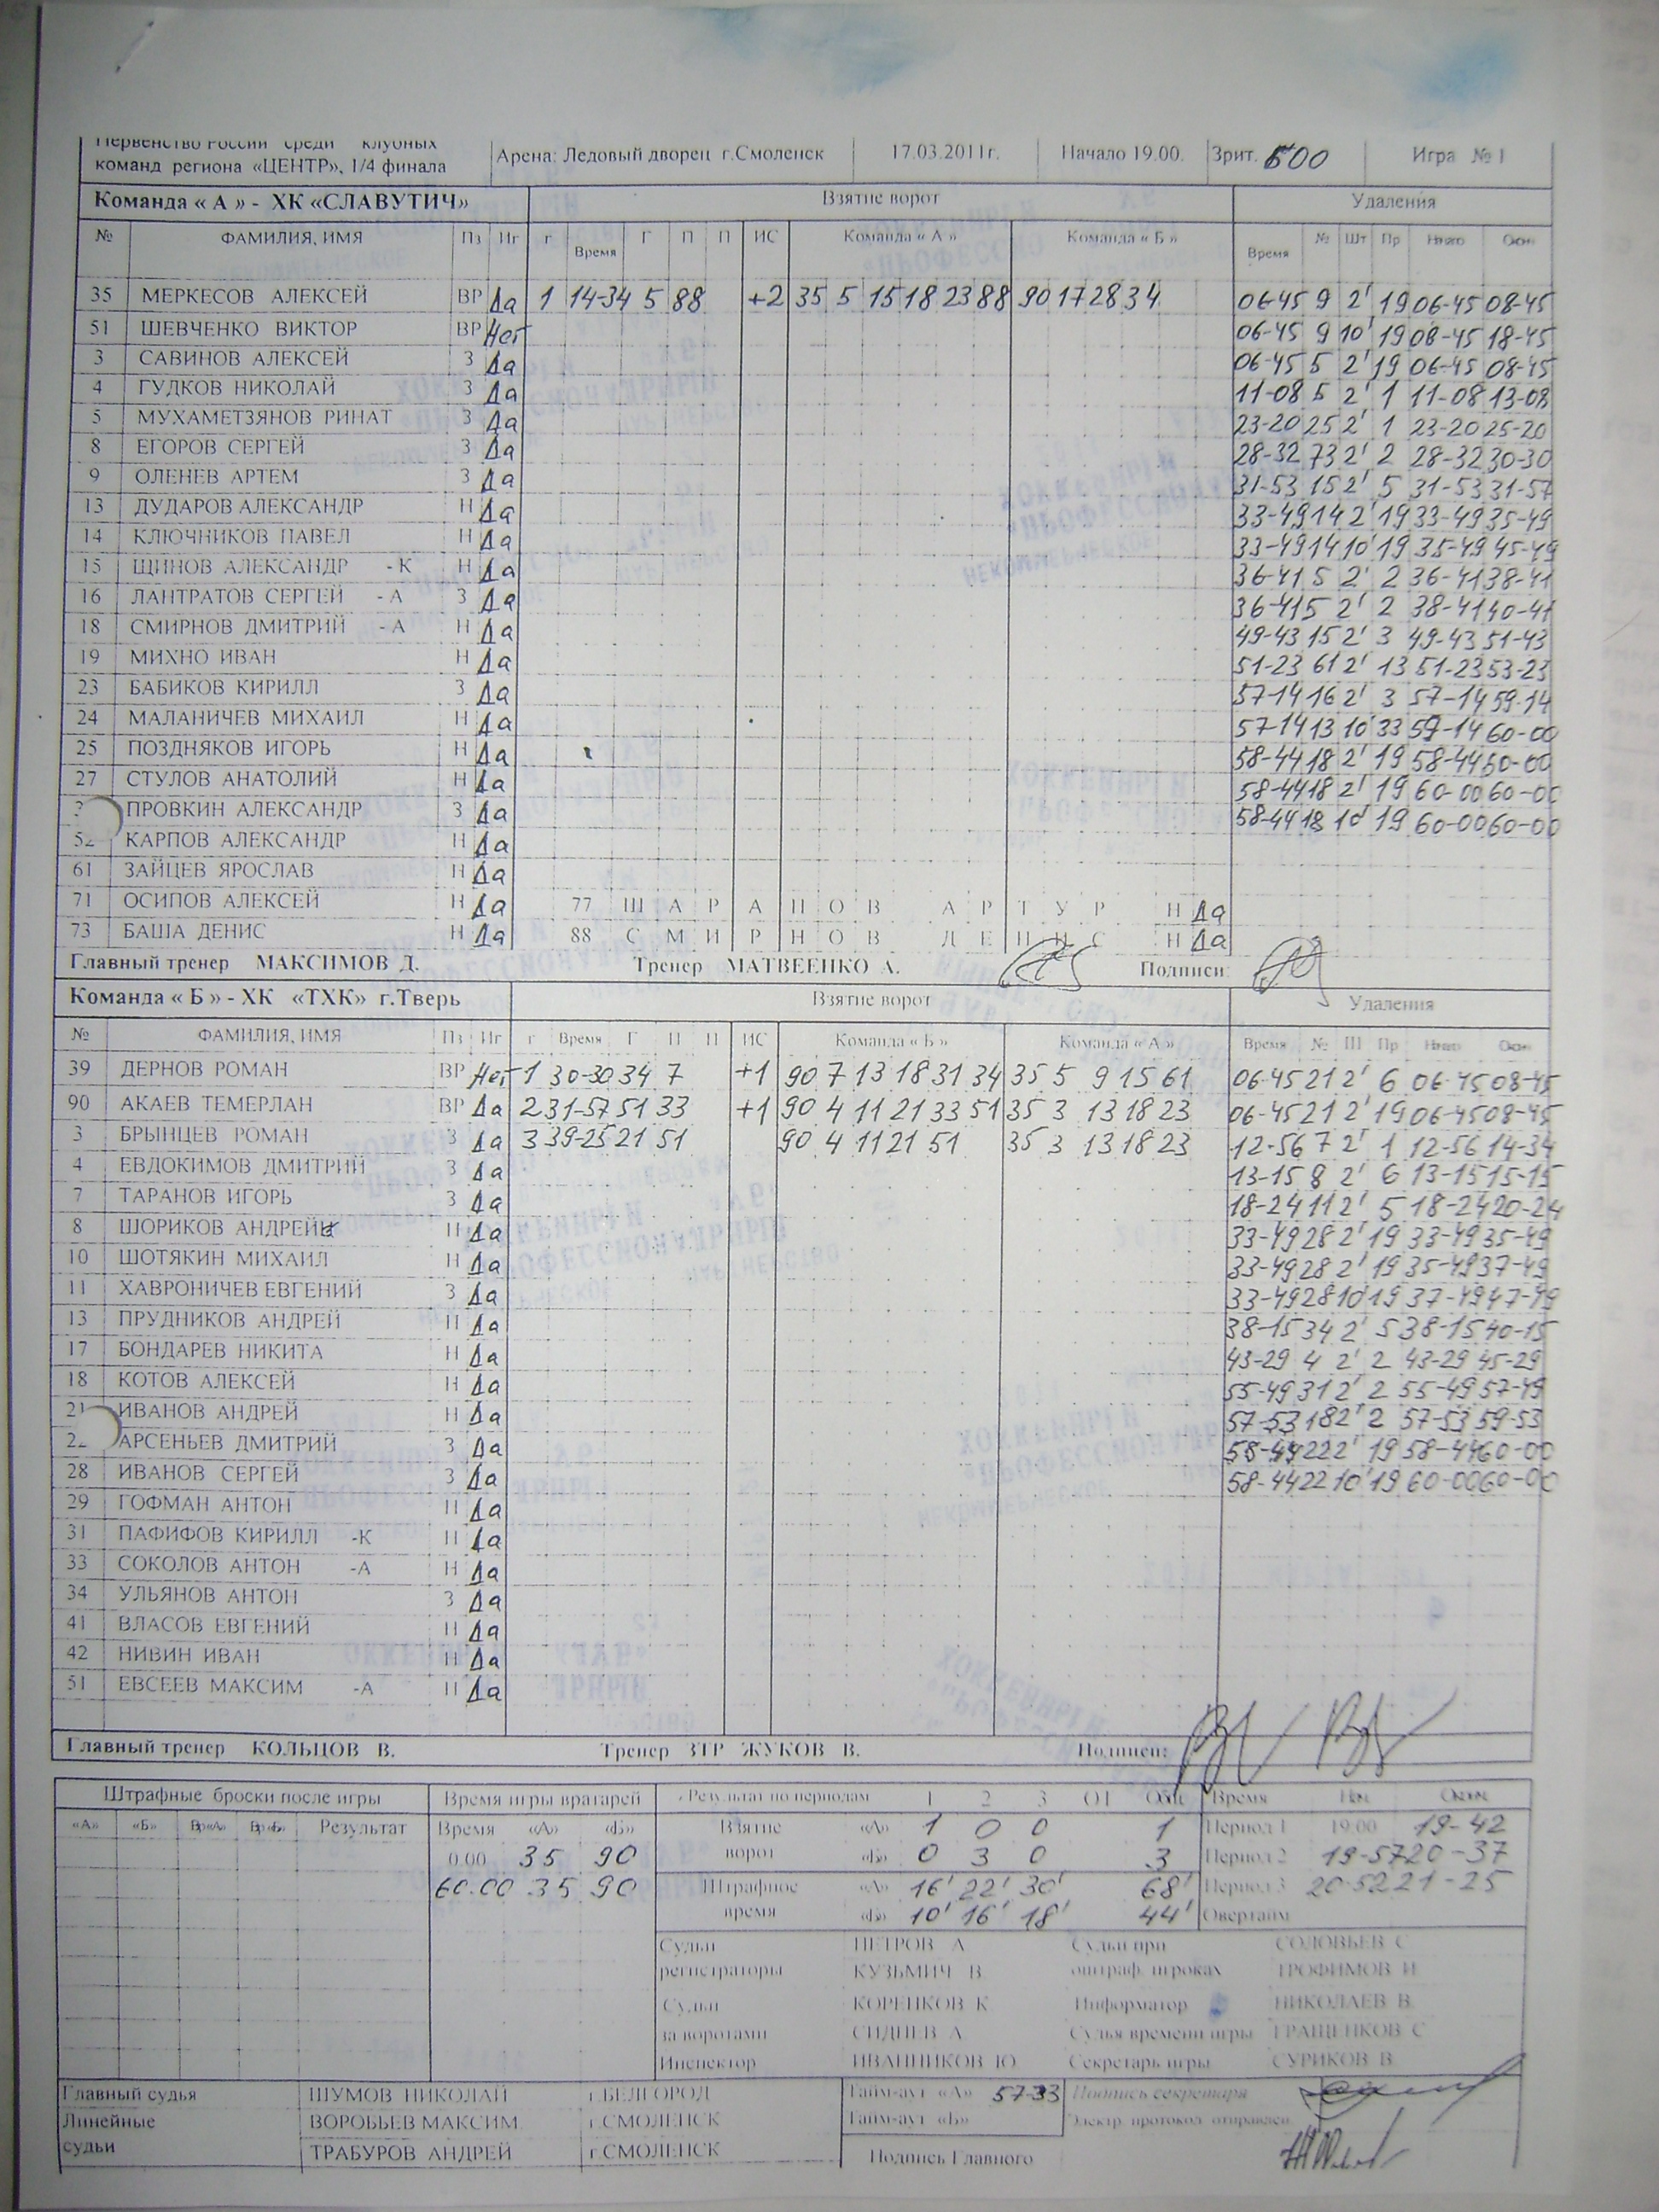 Первенство России среди клубных
команд региона «ЦЕНТР», 1/4 финала
Арена: Ледовый дворец г.Смоленск 17.03.2011г. Начало 19.00. Зрит. 500 Игра № 1
Команда « А » - ХК «СЛАВУТИЧ» Взятие ворот Удаления
№ ФАМИЛИЯ, ИМЯ Пз Иг г Время Г П П ИС Команда « А » Команда « Б » Время № Шт Пр Начало Окон
35 МЕРКЕСОВ АЛЕКСЕЙ ВР Да 1 14-34 5 88 +2 35 5 15 18 23 88 90 17 28 34 06-45 9 2' 19 06-45 08-45
51 ШЕВЧЕНКО ВИКТОР ВР Нет 06-45 9 10' 19 08-45 18-45
3 САВИНОВ АЛЕКСЕЙ З Да 06-45 5 2' 19 06-45 08-45
4 ГУДКОВ НИКОЛАЙ З Да 11-08 5 2' 1 11-08 13-08
5 МУХАМЕТЗЯНОВ РИНАТ З Да 23-20 25 2' 1 23-20 25-20
8 ЕГОРОВ СЕРГЕЙ З Да 28-32 73 2' 2 28-32 30-30
9 ОЛЕНЕВ АРТЕМ З Да 31-53 15 2' 5 31-53 31-57
13 ДУДАРОВ АЛЕКСАНДР Н Да 33-49 14 2' 19 33-49 35-49
14 КЛЮЧНИКОВ ПАВЕЛ Н Да 33-49 14 10' 19 35-49 45-49
15 ЩИНОВ АЛЕКСАНДР - К Н Да 36-41 5 2' 2 36-41 38-41
16 ЛАНТРАТОВ СЕРГЕЙ - А З Да 36-41 5 2' 2 38-41 40-41
18 СМИРНОВ ДМИТРИЙ - А Н Да 49-43 15 2' 3 49-43 51-43
19 МИХНО ИВАН Н Да 51-23 61 2' 13 51-23 53-23
23 БАБИКОВ КИРИЛЛ З Да 57-14 16 2' 3 57-14 59-14
24 МАЛАНИЧЕВ МИХАИЛ Н Да 57-14 13 10' 33 57-14 60-00
25 ПОЗДНЯКОВ ИГОРЬ Н Да 58-44 18 2' 19 58-44 60-00
27 СТУЛОВ АНАТОЛИЙ Н Да 58-44 18 2' 19 60-00 60-00
ПРОВКИН АЛЕКСАНДР З Да 58-44 18 10' 19 60-00 60-00
52 КАРПОВ АЛЕКСАНДР Н Да
61 ЗАЙЦЕВ ЯРОСЛАВ Н Да
71 ОСИПОВ АЛЕКСЕЙ Н Да 77 ШАРАПОВ АРТУР Н Да
73 БАША ДЕНИС Н Да 88 СМИРНОВ ДЕНИС Н Да
Главный тренер МАКСИМОВ Д. Тренер МАТВЕЕНКО А. Подписи:
Команда « Б » - ХК «ТХК» г.Тверь Взятие ворот Удаления
№ ФАМИЛИЯ, ИМЯ Пз Иг г Время Г П П ИС Команда « Б » Команда « А » Время № Ш Пр Начало Окон
39 ДЕРНОВ РОМАН ВР Нет 1 30-30 34 7 +1 90 7 13 18 31 34 35 5 9 15 61 06-45 21 2' 6 06-45 08-45
90 АКАЕВ ТЕМЕРЛАН ВР Да 2 31-57 51 33 +1 90 4 11 21 33 51 35 3 13 18 23 06-45 21 2' 19 06-45 08-45
3 БРЫНЦЕВ РОМАН З Да 3 39-25 21 51 90 4 11 21 51 35 3 13 18 23 12-56 7 2' 1 12-56 14-34
4 ЕВДОКИМОВ ДМИТРИЙ З Да 13-15 8 2' 6 13-15 15-15
7 ТАРАНОВ ИГОРЬ З Да 18-24 11 2' 5 18-24 20-24
8 ШОРИКОВ АНДРЕЙ Н Да 33-49 28 2' 19 33-49 35-49
10 ШОТЯКИН МИХАИЛ Н Да 33-49 28 2' 19 35-49 37-49
11 ХАВРОНИЧЕВ ЕВГЕНИЙ З Да 33-49 28 10' 19 37-49 47-49
13 ПРУДНИКОВ АНДРЕЙ Н Да 38-15 34 2' 5 38-15 40-15
17 БОНДАРЕВ НИКИТА Н Да 43-29 4 2' 2 43-29 45-29
18 КОТОВ АЛЕКСЕЙ Н Да 55-49 31 2' 2 55-49 57-49
21 ИВАНОВ АНДРЕЙ Н Да 57-53 18 2' 2 57-53 59-53
АРСЕНЬЕВ ДМИТРИЙ З Да 58-44 22 2' 19 58-44 60-00
28 ИВАНОВ СЕРГЕЙ З Да 58-44 22 10' 19 60-00 60-00
29 ГОФМАН АНТОН Н Да
31 ПАФИФОВ КИРИЛЛ -К Н Да
33 СОКОЛОВ АНТОН -А Н Да
34 УЛЬЯНОВ АНТОН З Да
41 ВЛАСОВ ЕВГЕНИЙ Н Да
42 НИВИН ИВАН Н Да
51 ЕВСЕЕВ МАКСИМ -А Н Да
Главный тренер КОЛЬЦОВ В. Тренер ЗТР ЖУКОВ В. Подписи:
Штрафные броски после игры Время игры вратарей Результат по периодам 1 2 3 ОТ Общ Время Нач. Оконч.
«А» «Б» Вр«А» Вр«Б» Результат Время «А» «Б» Взятие «А» 1 0 0 1 Период 1 19.00 19-42
0.00 35 90 ворот «Б» 0 3 0 3 Период 2 19-57 20-37
60.00 35 90 Штрафное «А» 16' 22' 30' 68' Период 3 20-52 21-25
время «Б» 10' 16' 18' 44' Овертайм
Судьи ПЕТРОВ А Судьи при СОЛОВЬЕВ С
регистраторы КУЗЬМИЧ В. оштраф. игроках ТРОФИМОВ И
Судьи КОРЕНКОВ К Информатор НИКОЛАЕВ В.
за воротами СИДНЕВ А Судья времени игры ГРАЩЕНКОВ С
Инспектор ИВАННИКОВ Ю. Секретарь игры СУРИКОВ В
Главный судья ШУМОВ НИКОЛАЙ г.БЕЛГОРОД Тайм-аут «А» 57-33 Подпись секретаря
Линейные ВОРОБЬЕВ МАКСИМ. г.СМОЛЕНСК Тайм-аут «Б» Электр. протокол отправлен
судьи ТРАБУРОВ АНДРЕЙ г.СМОЛЕНСК Подпись Главного